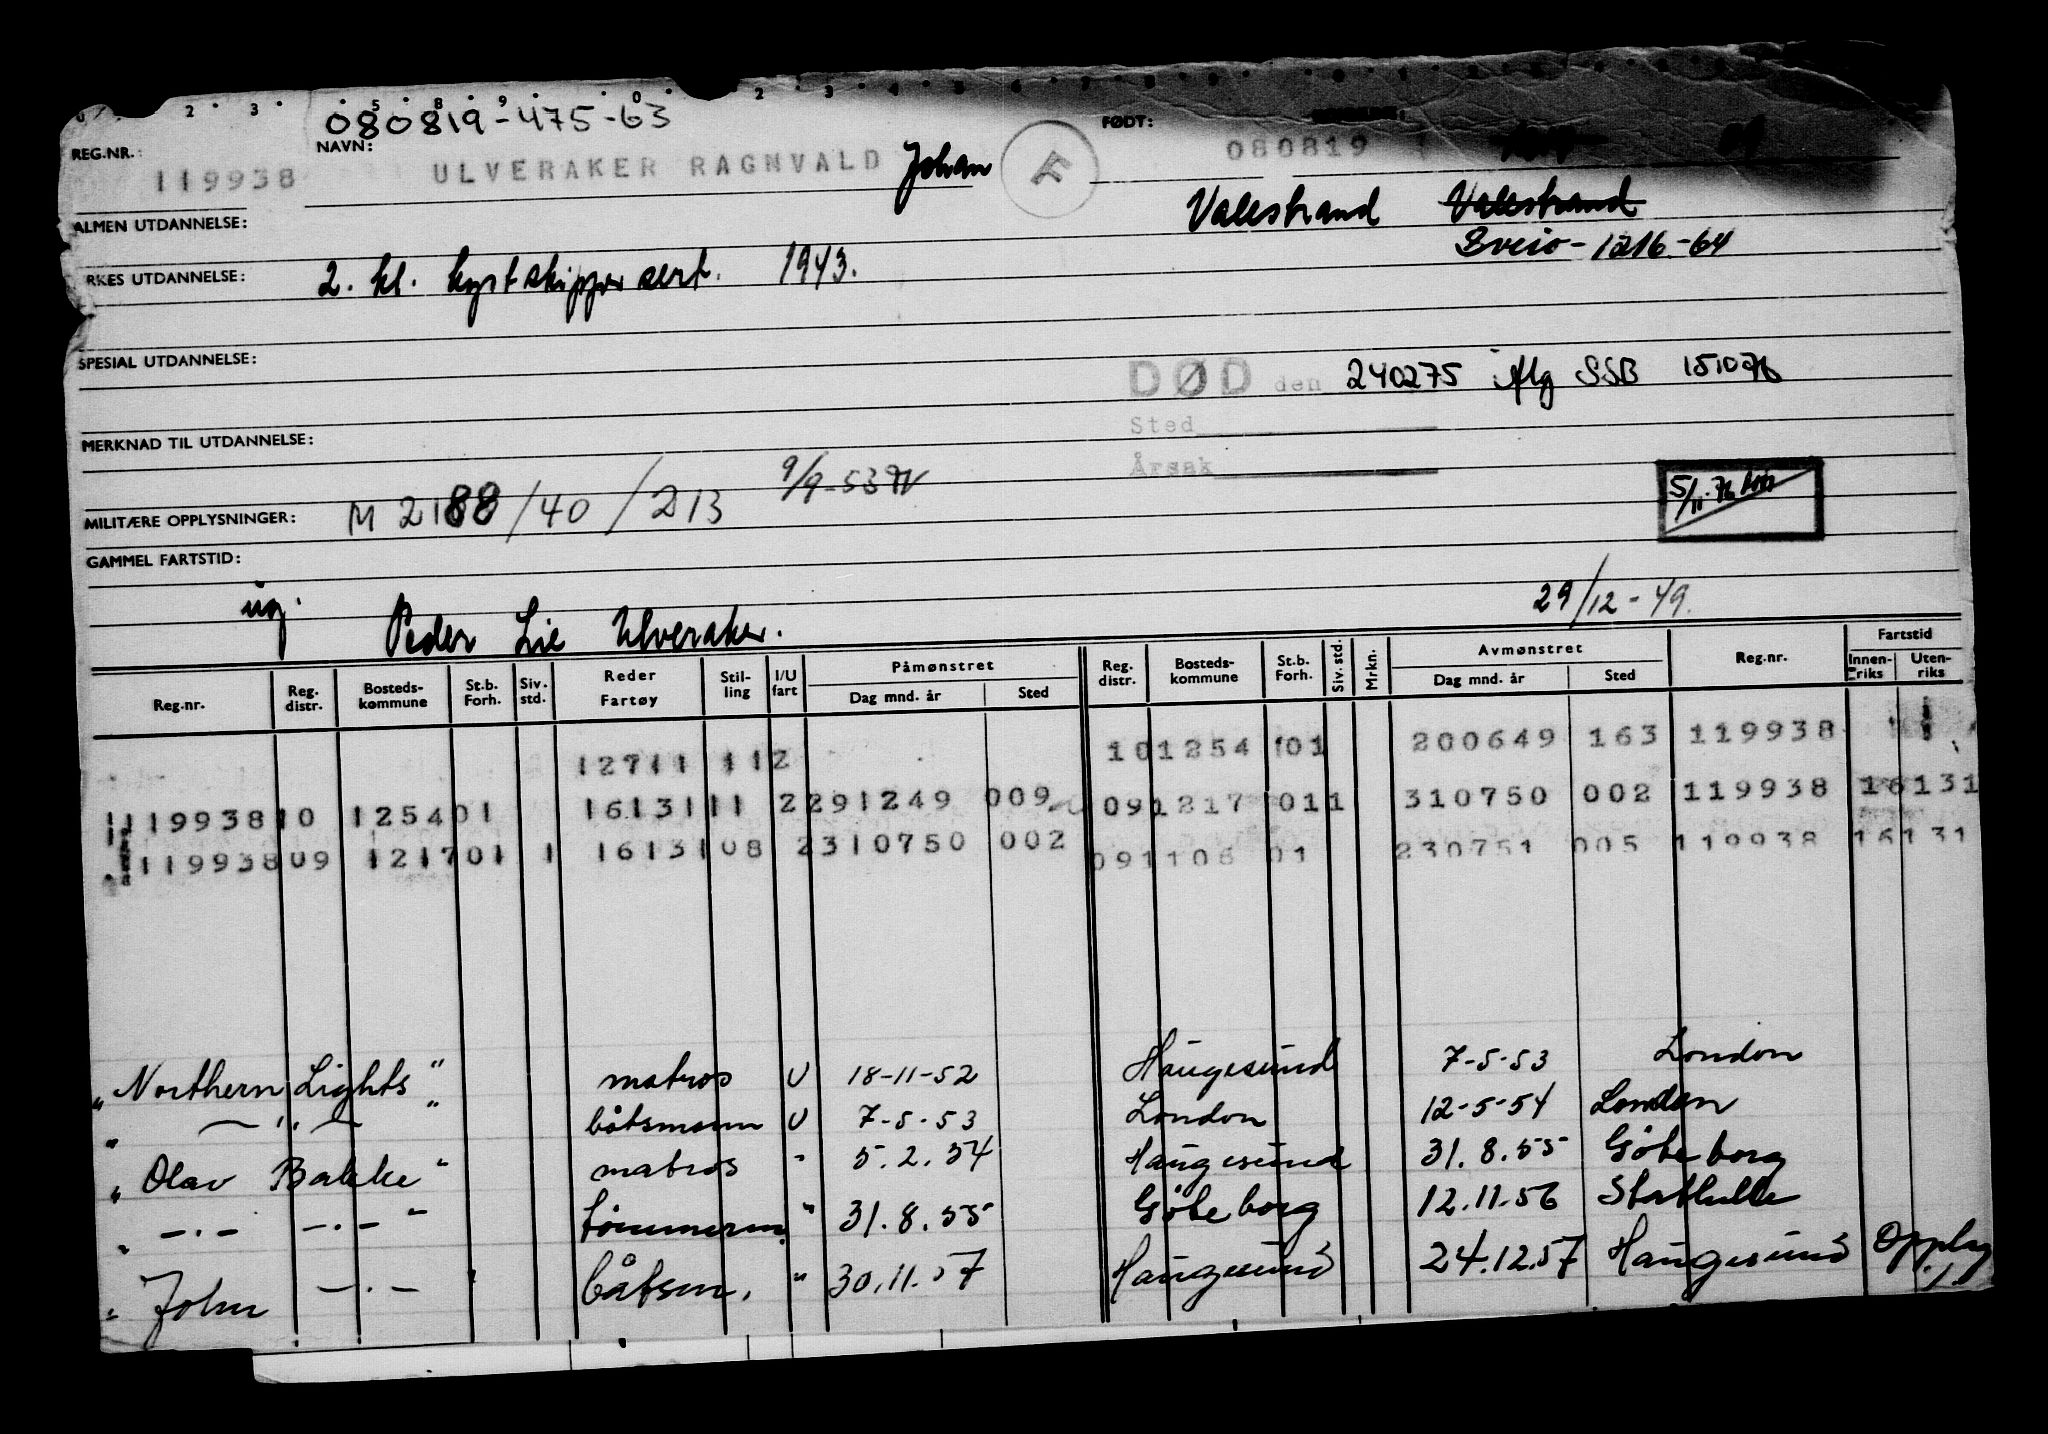 080819-475-63
REG.NR.: NAVN: FØDT:
119938 ULVERAKER RAGNVALD Johan 080819
ALMEN UTDANNELSE: Valestrand Valestrand
Sveio-1216-64
RKES UTDANNELSE: 2. kl. kystskippersert. 1943.
SPESIAL UTDANNELSE:
DØD den 240275 iflg SSB 151076
Sted
MERKNAD TIL UTDANNELSE: Årsak
MILITÆRE OPPLYSNINGER: M 2188/40/213 9/9-53 5/11-76
GAMMEL FARTSTID:
ug. Peder Lie Ulveraker. 29/12-49.
Reg.nr. Reg. distr. Bosteds-kommune St.b. Forh. Siv. std. Reder Fartøy Stil-ling I/U fart Påmønstret Dag mnd. år Sted Reg. distr. Bosteds-kommune St.b. Forh. Siv. std. Mrkn. Avmønstret Dag mnd. år Sted Reg.nr. Fartstid Innen-riks Uten-riks
12711 112 101254 01 200649 163 119938
119938 10 125401 16131 11 2 291249 009 091217 011 310750 002 119938 16131
119938 09 121701 1 16131 08 2 310750 002 091106 01 230751 005 119938 16131
„Northern Lights" matros U 18-11-52 Haugesund 7-5-53 London
„ — " — " båtsmann U 7-5-53 London 12-5-54 London
„Olav Bakke" matros " 5.2.54 Haugesund 31.8.55 Göteborg
„ —.— —.— " tømmerm. " 31.8.55 Göteborg 12.11.56 Stathelle
„ John —.— " båtsm. " 30.11.57 Haugesund 24.12.57 Haugesund